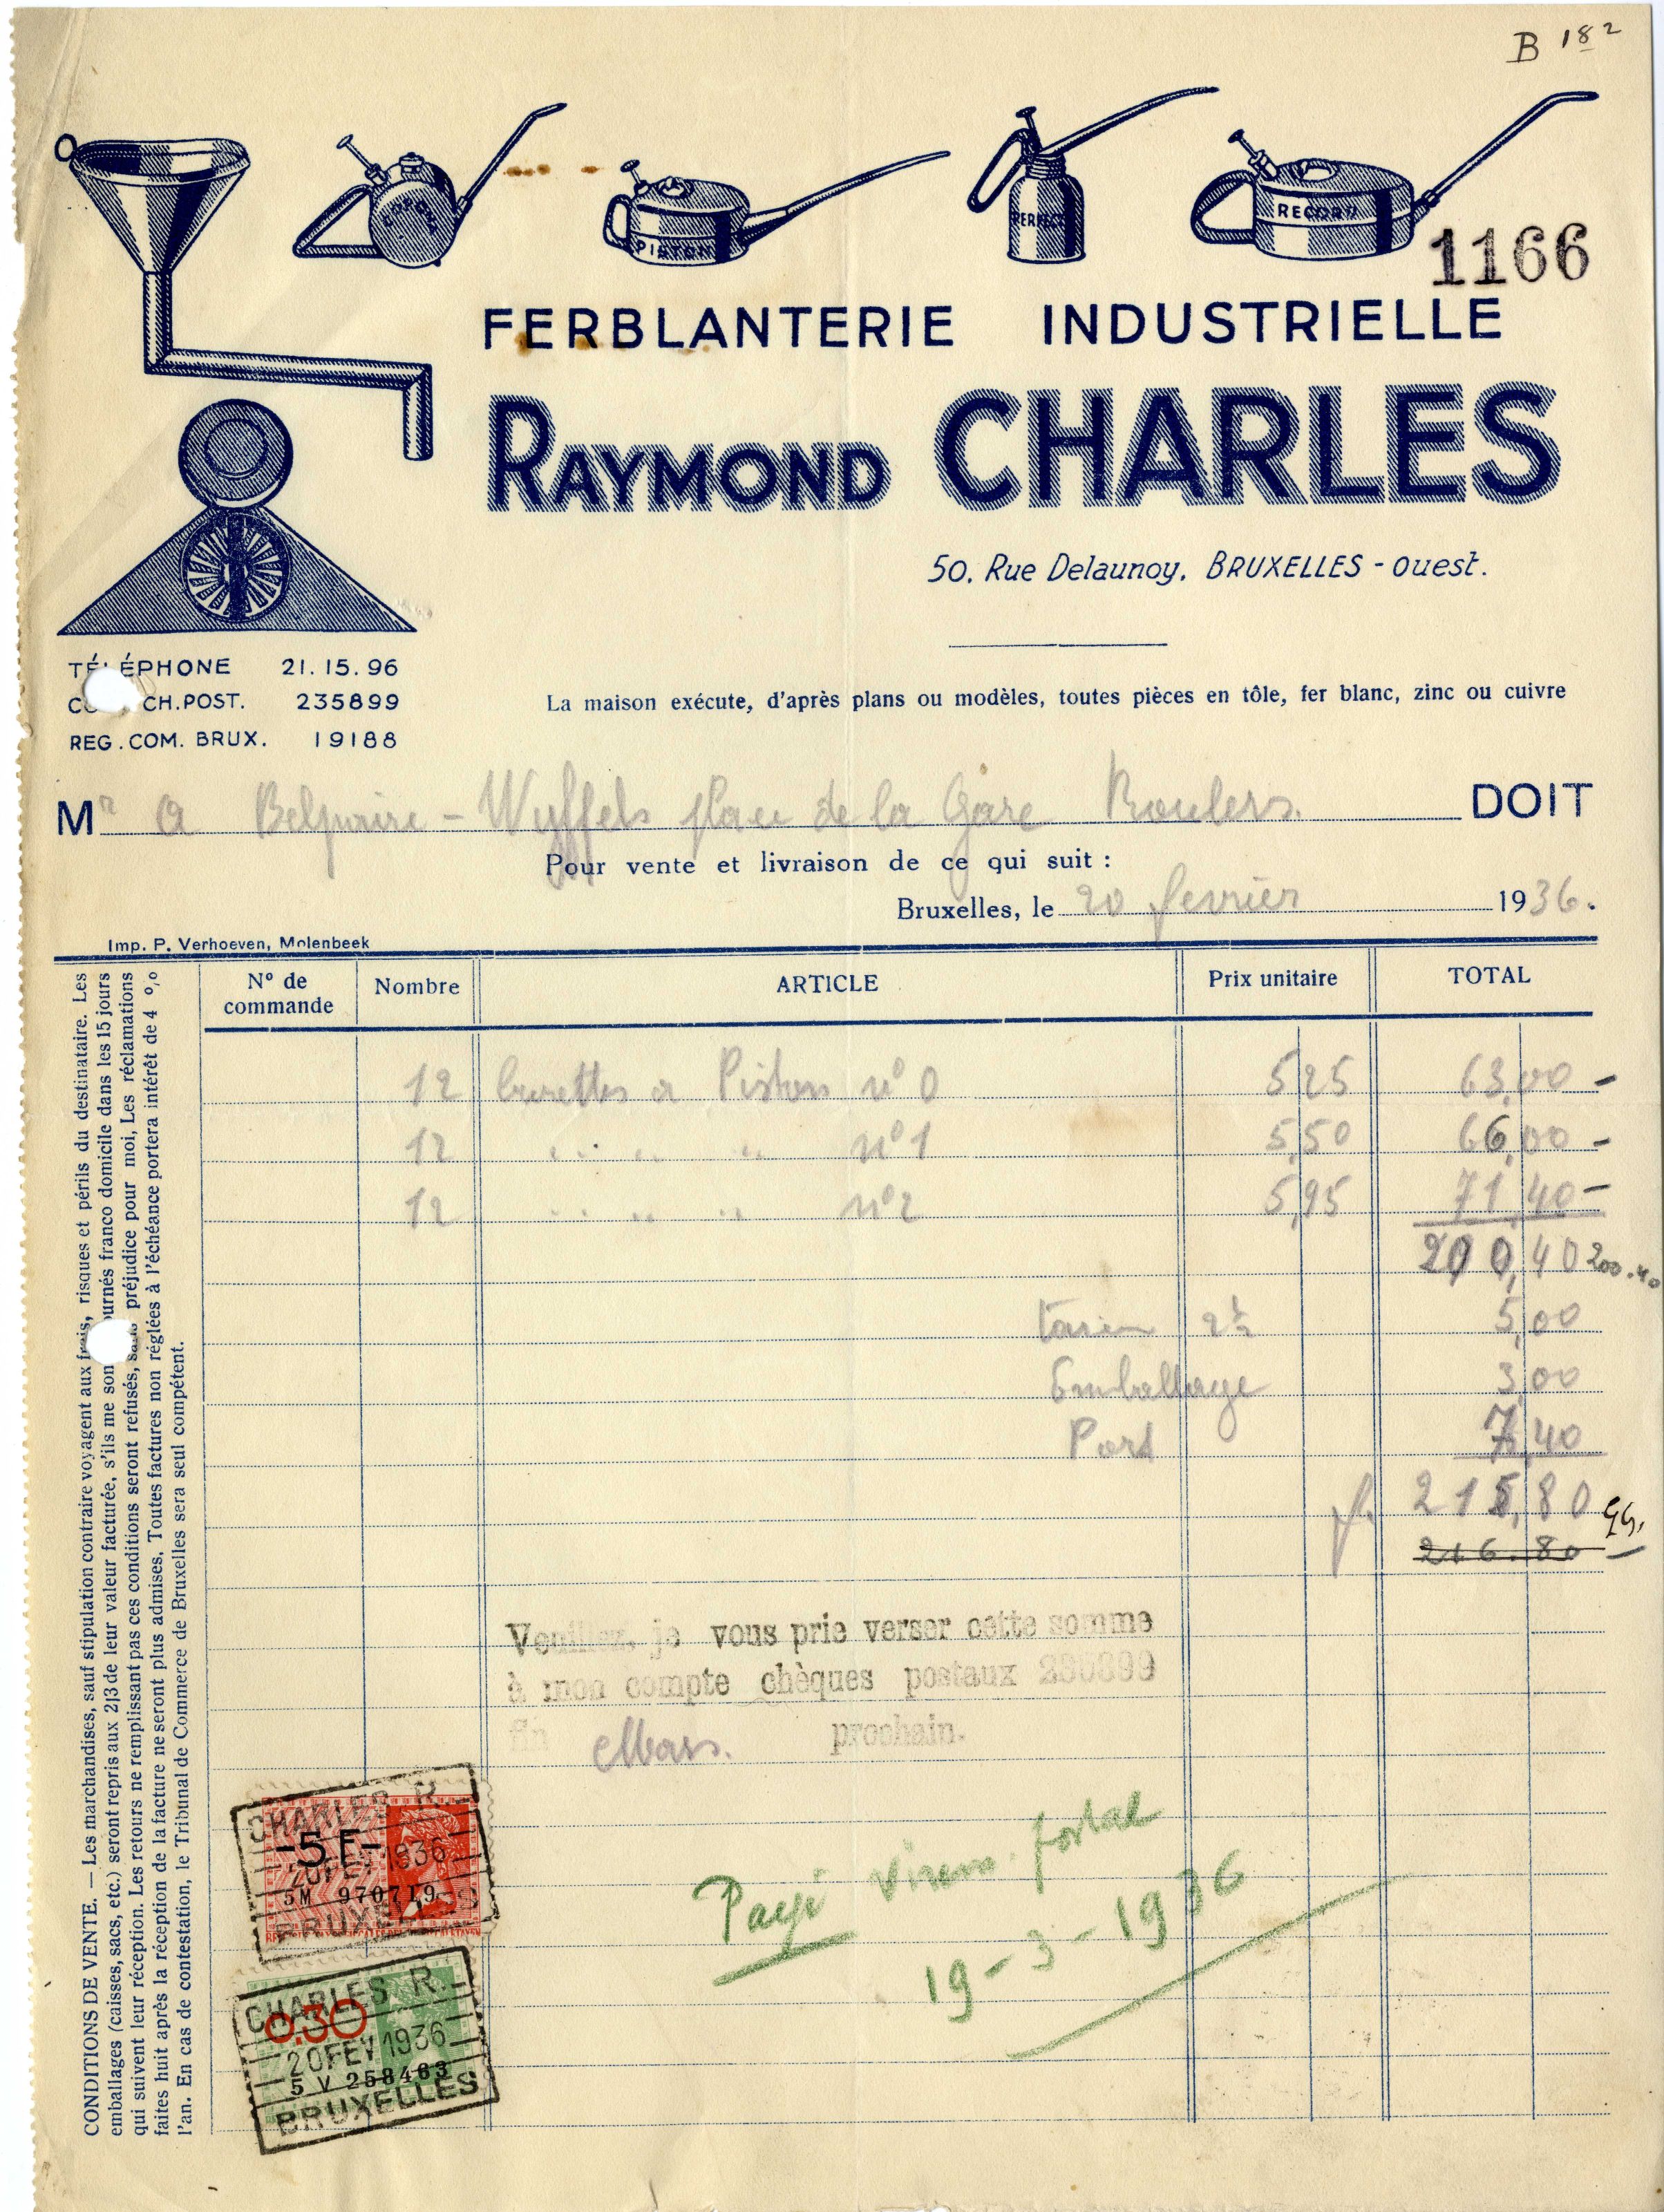 B 18²
CORONA
PISTON
PERFECT
RECORD
1166
FERBLANTERIE INDUSTRIELLE
RAYMOND CHARLES
50, Rue Delaunoy, BRUXELLES - ouest.
TÉLÉPHONE 21.15.96
CH.POST. 235899
REG.COM. BRUX. 19188
La maison exécute, d'après plans ou modèles, toutes pièces en tôle, fer blanc, zinc ou cuivre
Mr A Belpaire - Wyffels place de la Gare Roulers. DOIT
Pour vente et livraison de ce qui suit :
Bruxelles, le 20 fevrier 1936.
Imp. P. Verhoeven, Molenbeek
Nº de commande Nombre ARTICLE Prix unitaire TOTAL
12 burettes a Piston nº 0 5,25 63,00 -
12 .. .. .. nº 1 5,50 66,00 -
12 .. .. .. nº 2 5,95 71,40 -
200,40 200.40
2½ 5,00
Emballage 3,00
Port 7,40
fr. 215,80
216.80
Veuillez, je vous prie verser cette somme
à mon compte chèques postaux 235899
fin Mars. prochain.
Payé virem. postal
19-3-1936
CHARLES R.
-5F-
20 FEV 1936
5M 970719
BRUXELLES
CHARLES R.
0.30
20 FEV 1936
5 V 258463
BRUXELLES
CONDITIONS DE VENTE. — Les marchandises, sauf stipulation contraire voyagent aux frais, risques et périls du destinataire. Les
emballages (caisses, sacs, etc.) seront repris aux 2/3 de leur valeur facturée, s'ils me sont retournés franco domicile dans les 15 jours
qui suivent leur réception. Les retours ne remplissant pas ces conditions seront refusés, sans préjudice pour moi, Les réclamations
faites huit après la réception de la facture ne seront plus admises. Toutes factures non réglées à l'échéance portera intérêt de 4 %
l'an. En cas de contestation, le Tribunal de Commerce de Bruxelles sera seul compétent.